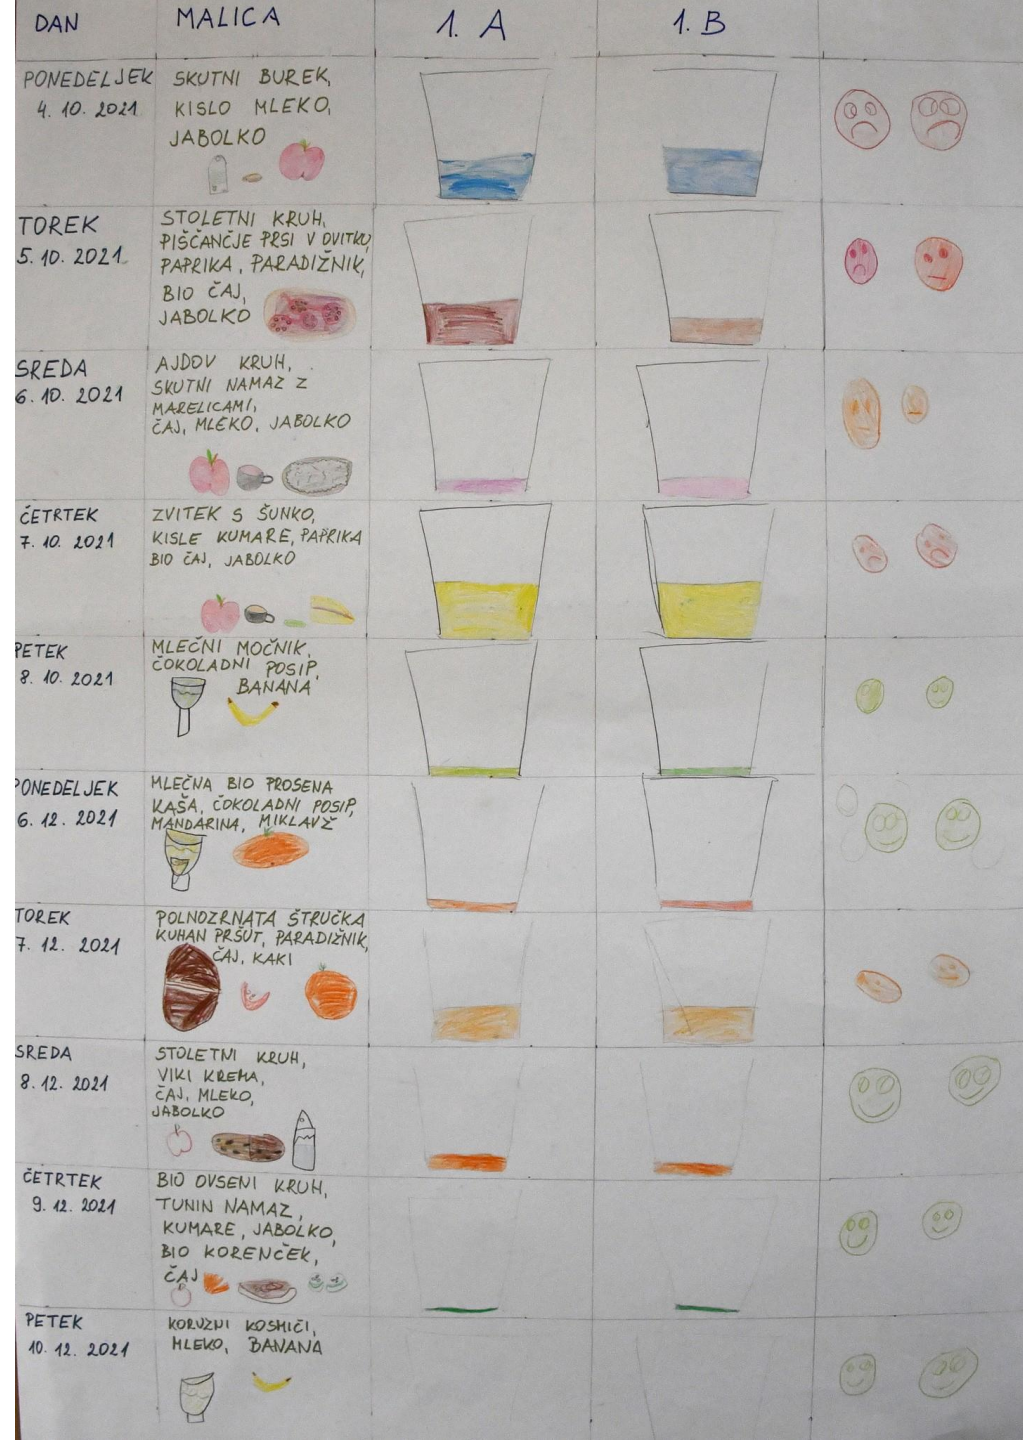 DAN MALICA 1. A 1. B
PONEDELJEK
4. 10. 2021
SKUTNI BUREK,
KISLO MLEKO,
JABOLKO
TOREK
5. 10. 2021
STOLETNI KRUH,
PIŠČANČJE PRSI V OVITKU,
PAPRIKA, PARADIŽNIK,
BIO ČAJ,
JABOLKO
SREDA
6. 10. 2021
AJDOV KRUH,
SKUTNI NAMAZ Z
MARELICAMI,
ČAJ, MLEKO, JABOLKO
ČETRTEK
7. 10. 2021
ZVITEK S ŠUNKO,
KISLE KUMARE, PAPRIKA
BIO ČAJ, JABOLKO
PETEK
8. 10. 2021
MLEČNI MOČNIK,
ČOKOLADNI POSIP,
BANANA
PONEDELJEK
6. 12. 2021
MLEČNA BIO PROSENA
KAŠA, ČOKOLADNI POSIP,
MANDARINA, MIKLAVŽ
TOREK
7. 12. 2021
POLNOZRNATA ŠTRUČKA
KUHAN PRŠUT, PARADIŽNIK,
ČAJ, KAKI
SREDA
8. 12. 2021
STOLETNI KRUH,
VIKI KREMA,
ČAJ, MLEKO,
JABOLKO
ČETRTEK
9. 12. 2021
BIO OVSENI KRUH,
TUNIN NAMAZ,
KUMARE, JABOLKO,
BIO KORENČEK,
ČAJ
PETEK
10. 12. 2021
KORUZNI KOSMIČI,
MLEKO, BANANA